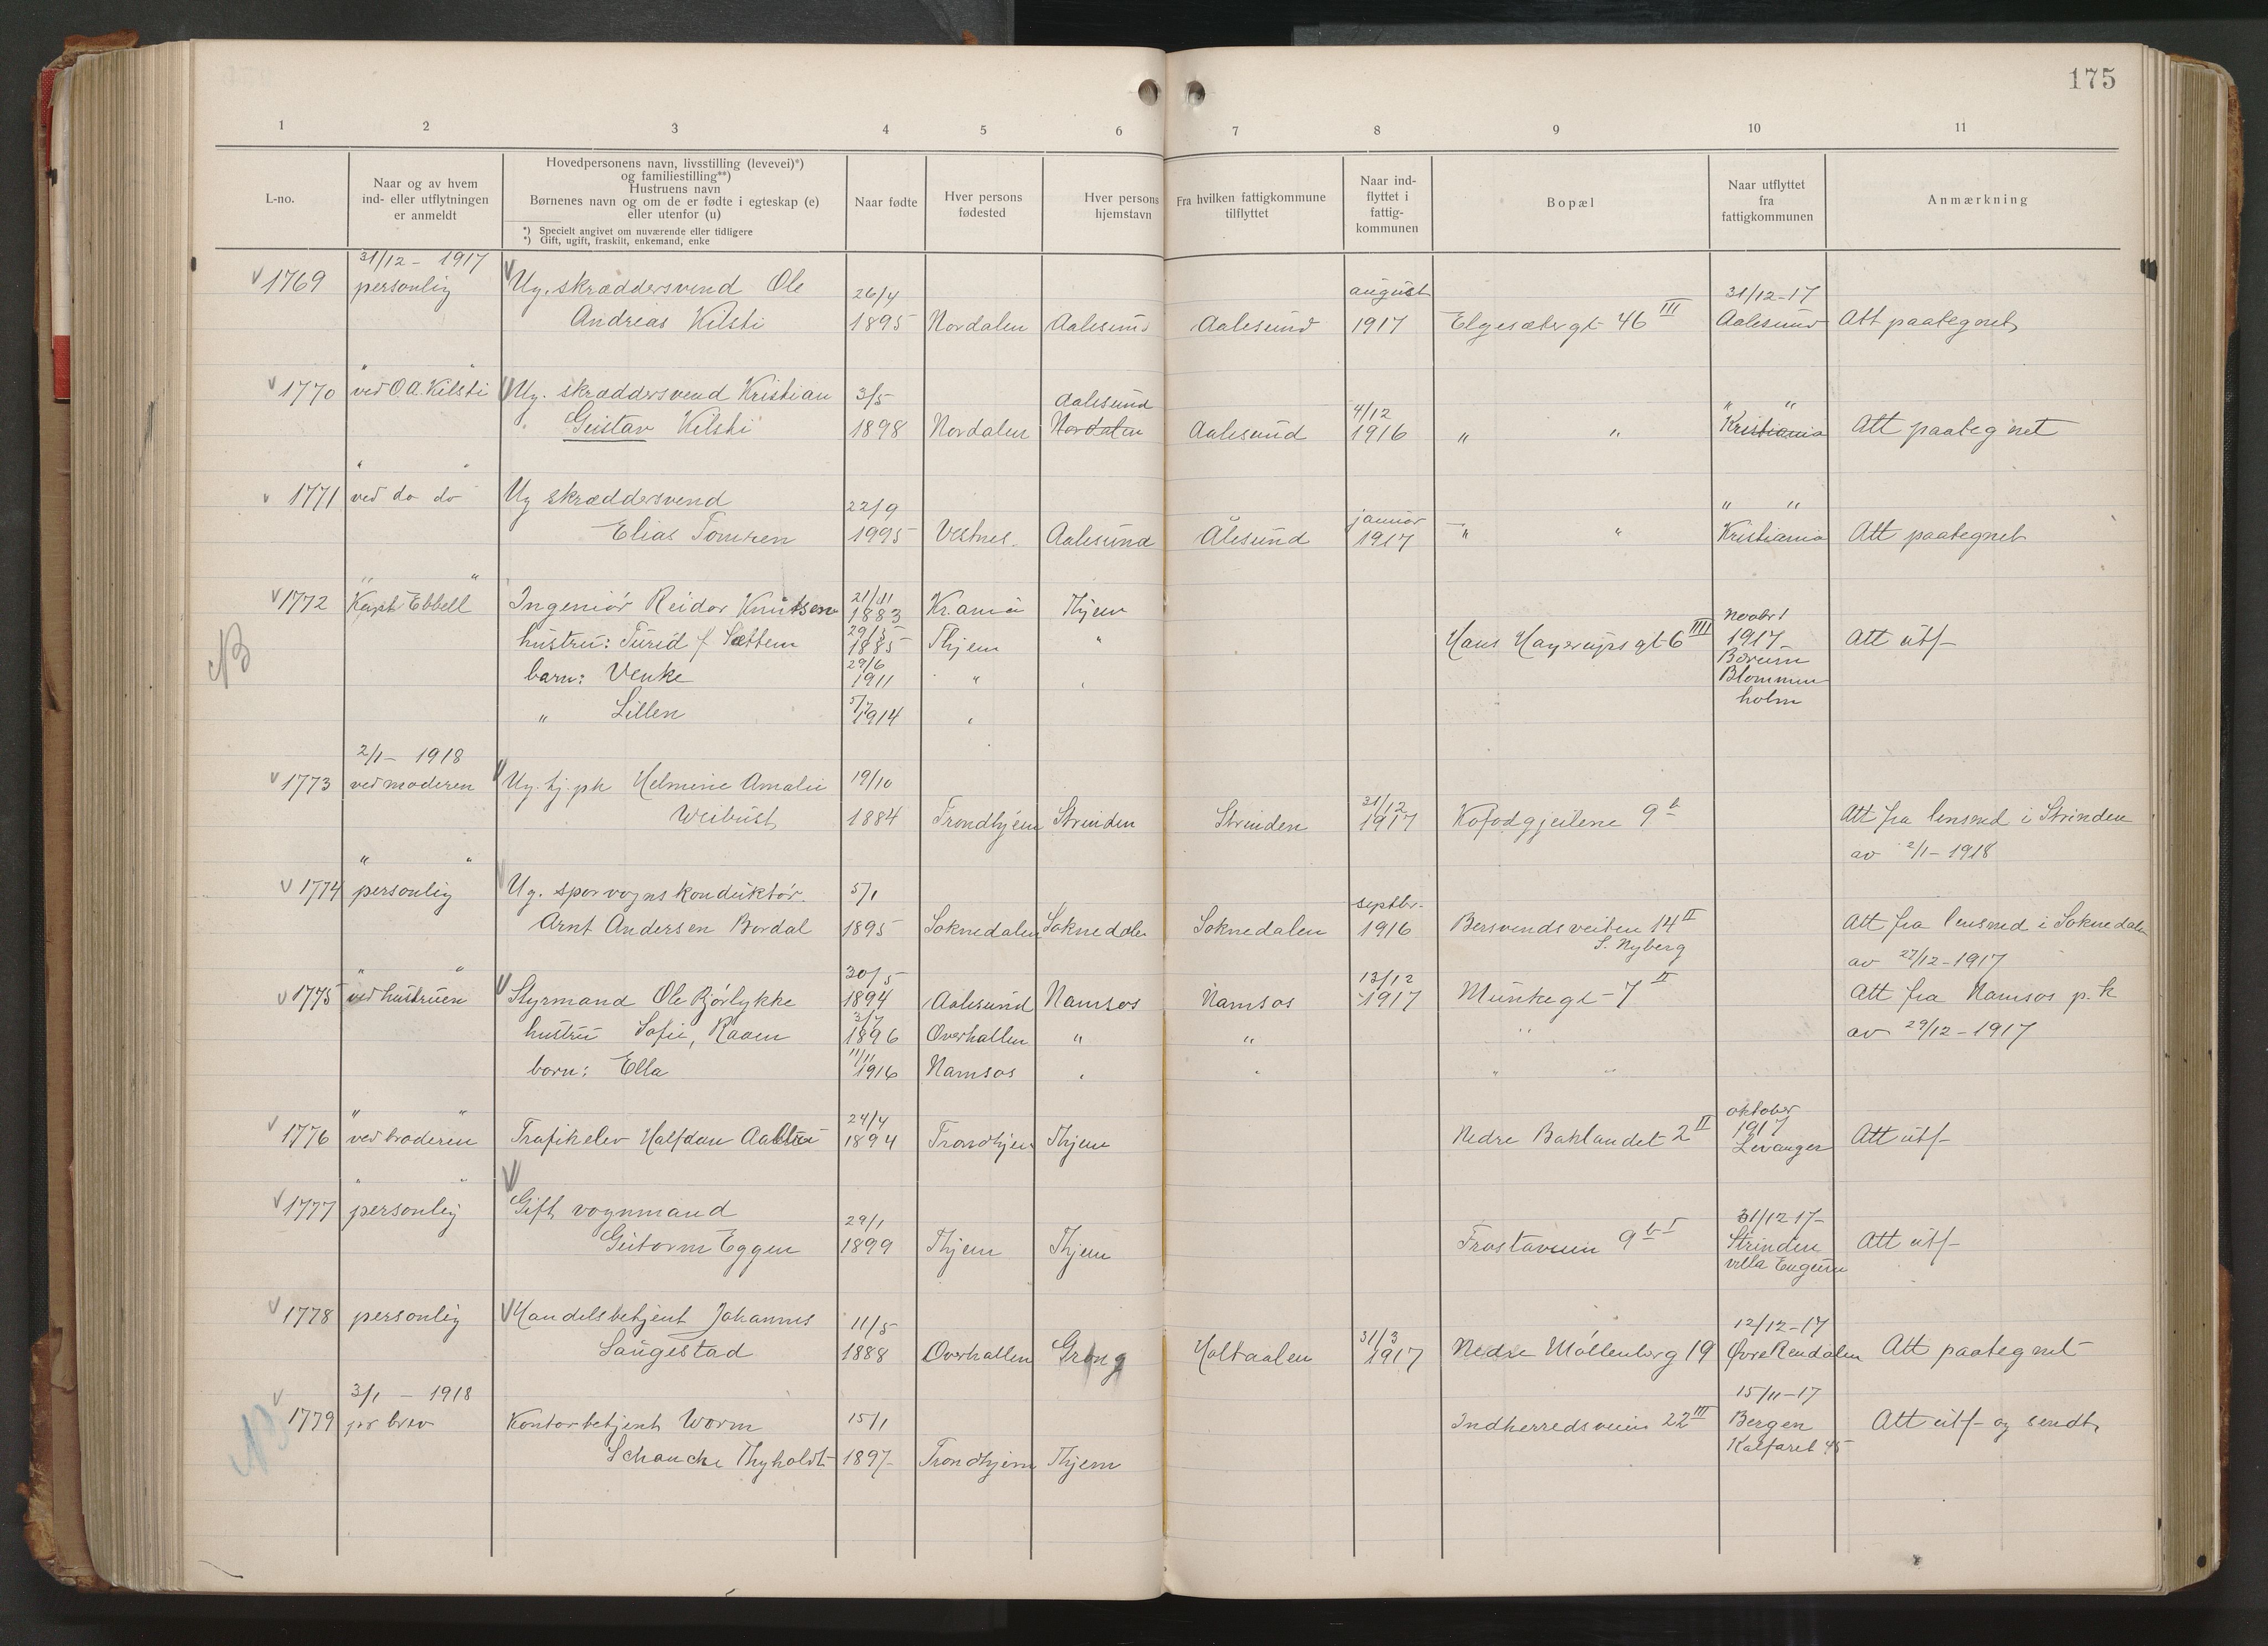 175
1 2 3 4 5 6 7 8 9 10 11
L-no.
Naar og av hvem
ind- eller utflytningen
er anmeldt
Hovedpersonens navn, livsstilling (levevei)*)
og familiestilling**)
Hustruens navn
Børnenes navn og om de er fødte i egteskap (e)
eller utenfor (u)
*) Specielt angivet om nuværende eller tidligere
*) Gift, ugift, fraskilt, enkemand, enke
Naar fødte
Hver persons
fødested
Hver persons
hjemstavn
Fra hvilken fattigkommune
tilflyttet
Naar ind-
flyttet i
fattig-
kommunen
Bopæl
Naar utflyttet
fra
fattigkommunen
Anmærkning
31/12 - 1917
1769 personlig Ug. skræddersvend Ole 26/4 august 31/12-17
Andreas Kilsti 1895 Nordalen Aalesund Aalesund 1917 Elgesæter gt 46 III Aalesund Att paategnet
" "
1770 ved O.A. Kilsti Ug. skræddersvend Kristian 3/5 Aalesund 4/12 " "
Gustav Kilsti 1898 Nordalen Nordalen Aalesund 1916 " " Kristiania Att paategnet
" "
1771 ved do do Ug skræddersvend 22/9 januar " "
Elias Tomren 1995 Vestnes. Aalesund Ålesund 1917 " " Kristiania Att paategnet
" "
1772 Kapt Ebbell Ingeniør Reidar Knutsen 21/11 1883 Kr.ania Thjem Novbr
hustru: Turid f. Sættem 29/5 1885 Thjem " Hans Hagerups gt 6 IIII 1917 - Att utf-
barn: Venke 29/6 1911 " " Bærum
" Lillen 5/7 1914 " Blommen
holm
2/1 - 1918
1773 ved moderen Ug. hj. pk Helmine Amalie 19/10 31/12
Weibust 1884 Trondhjem Strinden Strinden 1917 Kofodgjeilene 9 b Att fra lensmd i Strinden
" " av 2/1 - 1918
1774 personlig Ug. sporvognskonduktør. 5/1 septbr.
Arnt Andersen Bordal 1895 Soknedalen Soknedalen Soknedalen 1916 Bersvendsveiten 14 II Att fra lensmd i Soknedalen
S. Nyberg av 27/12 - 1917
" "
1775 ved hustruen Styrmand Ole Bjørlykke 30/5 1894 Aalesund Namsos Namsos 13/12 1917 Munkegt - 7 II Att fra Namsos p.k
hustru Sofie, Raaen 3/7 1896 Overhallen " " " av 29/12 - 1917
barn: Ella 11/11 1916 Namsos " " " "
" " oktober
1776 ved broderen Trafikelev Halfdan 24/4 1894 Trondhjem Thjem Nedre Baklandet 2 II 1917 Levanger Att utf-
" "
1777 personlig Gift vognmand 29/1 31/12-17-
Gutorm Eggen 1899 Thjem Thjem Frostaveien 9 b I Strinden Att utf-
villa Engum
1778 personlig Handelsbetjent Johannes 11/5 31/3 12/12-17
Saugestad 1888 Overhallen Grong Holtaalen 1917 Nedre Møllenberg 19 Øvre Rendalen Att paategnet
3/1 - 1918 15/11-17
1779 pr brev Kontorbetjent Worm 15/1 Indherredsveien 22 III Bergen Att utf- og sendt,
Schancke Thyholdt 1897 Trondhjem Thjem Kalfaret 45